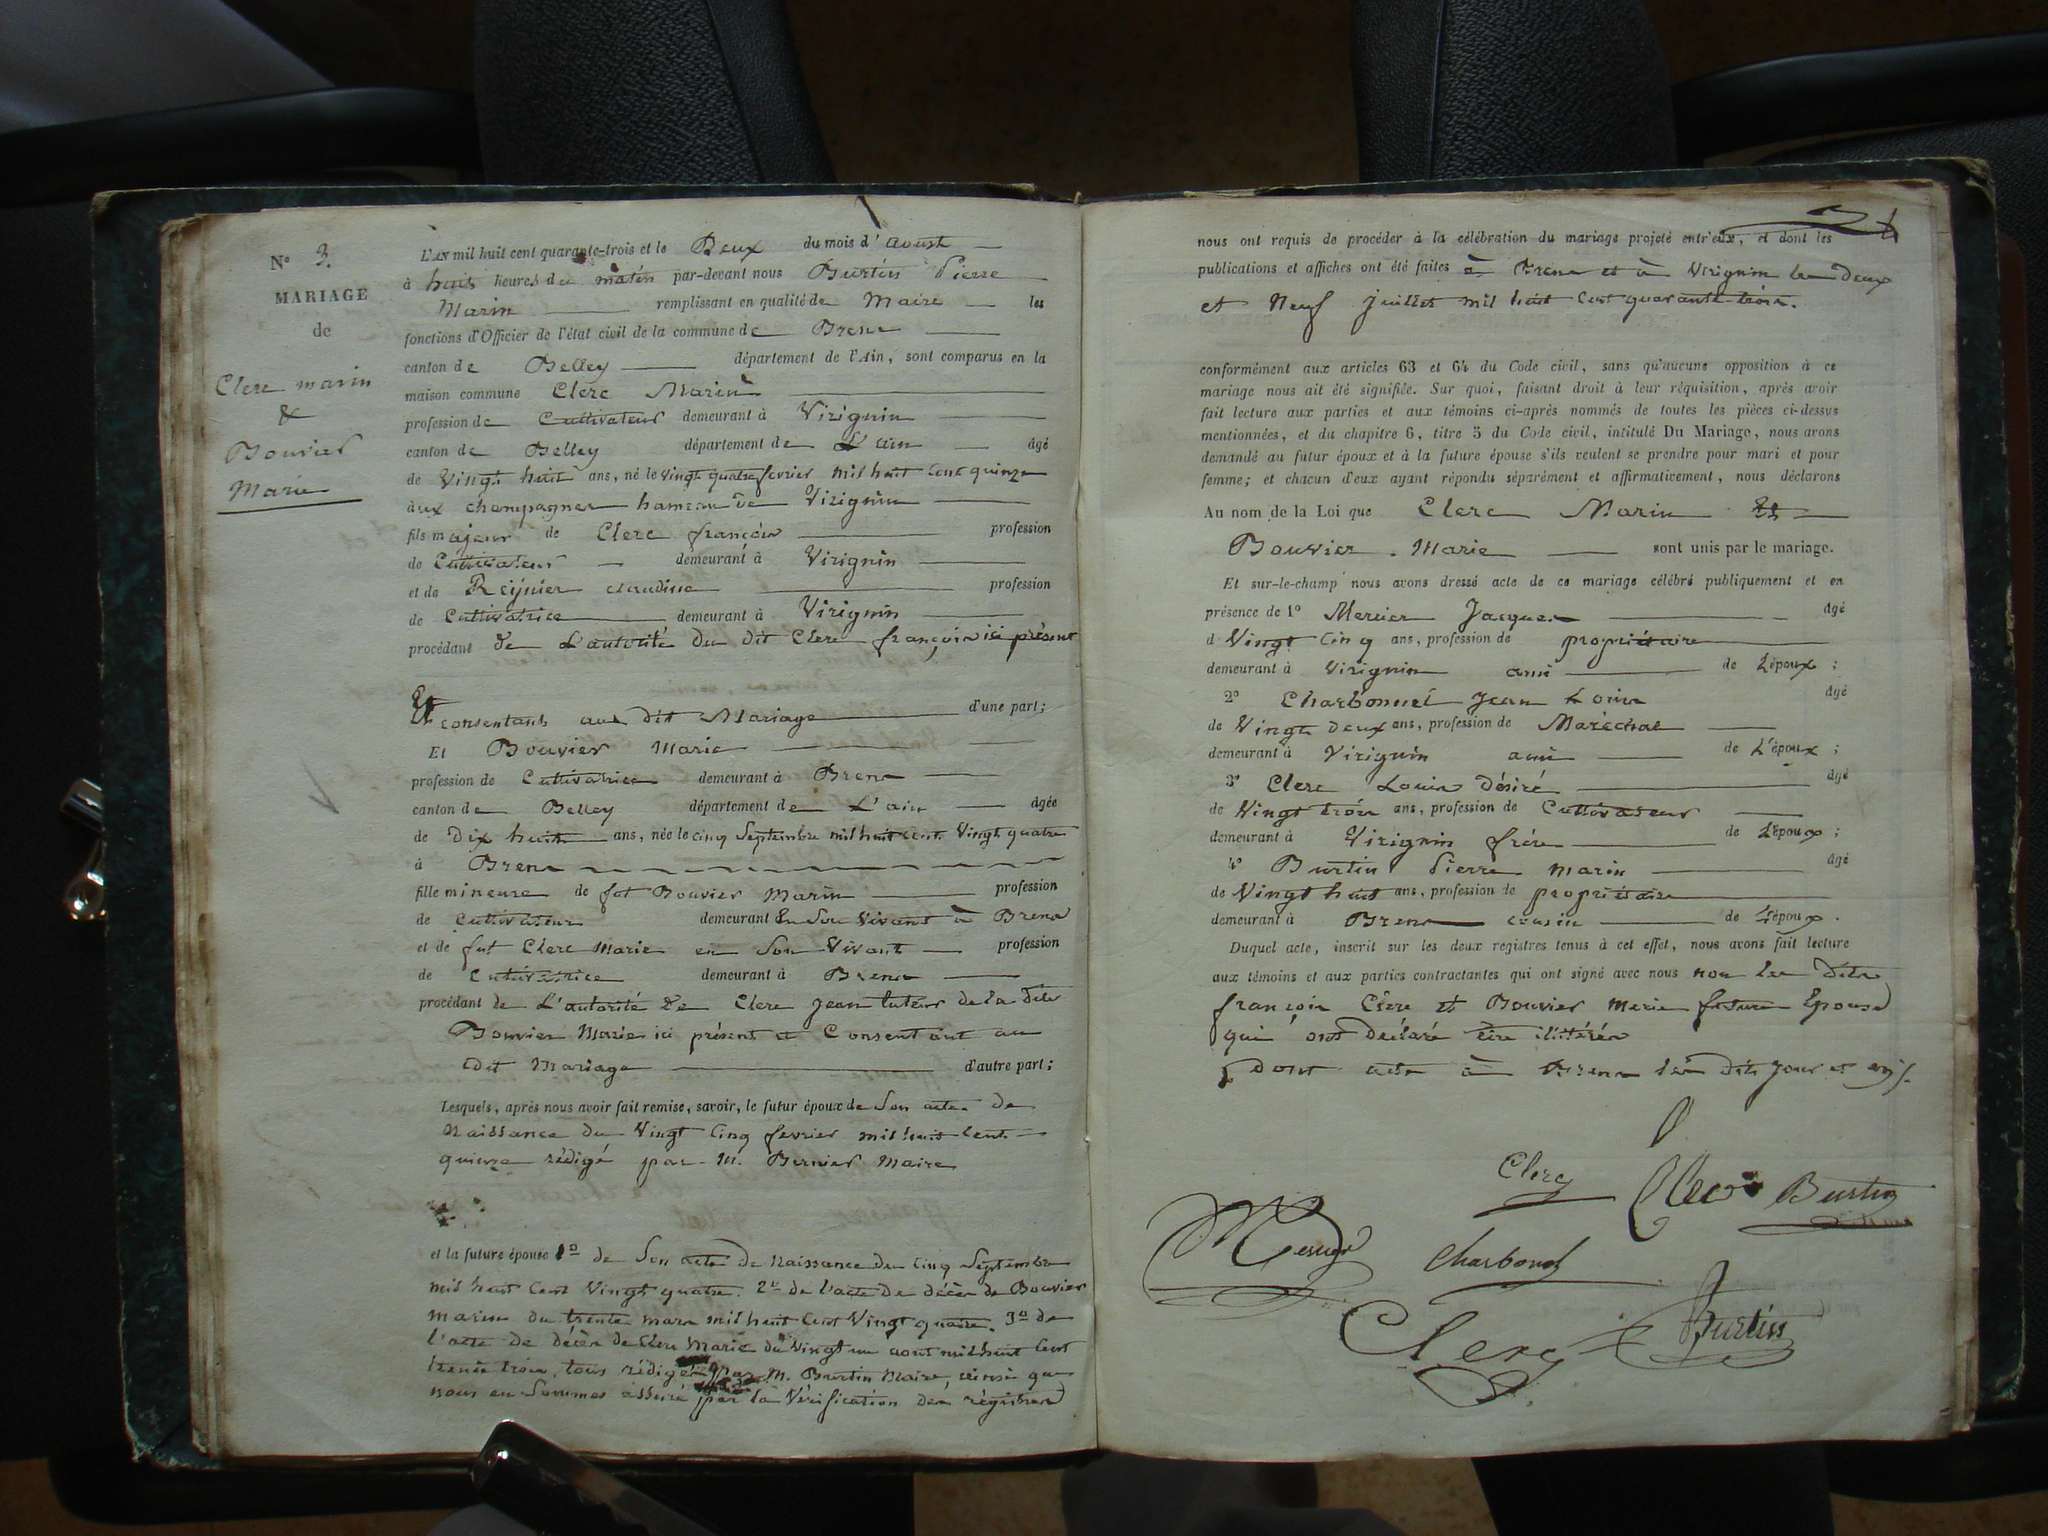 N° 3.
MARIAGE
de
Clerc marin
&
Bouvier
Marie
L'an mil huit cent quarante-trois et le Deux du mois d'aoust
à huit heures du matin par-devant nous Burtin Pierre
Marin remplissant en qualité de Maire les
fonctions d'Officier de l'état civil de la commune de Brens
canton de Belley département de l'Ain, sont comparus en la
maison commune Clerc Marin
profession de Cultivateur demeurant à Virignin
canton de Belley département de L'ain âgé
de Vingt huit ans, né le vingt quatre fevrier mil huit Cent quinze
aux champagnes hameau de Virignin
fils majeur de Clerc françois profession
de Cultivateur demeurant à Virignin
et de Reynier claudine profession
de Cultivatrice demeurant à Virignin
procédant de L'autorité du dit Clerc françois ici présent
Et consentant au dit Mariage d'une part;
Et Bouvier Marie
profession de Cultivatrice demeurant à Brens
canton de Belley département de L'ain âgée
de Dix huit ans, née le cinq Septembre mil huit cent Vingt quatre
à Brens
fille mineure de fut Bouvier Marin profession
de Cultivateur demeurant En Son Vivant à Brens
et de fut Clerc Marie en Son Vivant profession
de Cultivatrice demeurant à Brens
procédant de L'autorité de Clerc Jean tuteur de la dite
Bouvier Marie ici présent et Consentant au
dit Mariage d'autre part;
Lesquels, après nous avoir fait remise, savoir, le futur époux de Son acte de
Naissance du Vingt Cinq fevrier mil huit Cent
quinze rédigé par M. Bernier Maire
et la future épouse 1° de Son acte de Naissance du Cinq Septembre
mil huit Cent Vingt quatre. 2° de l'acte de décès de Bouvier
marin du trente mars mil huit Cent Vingt quatre. 3° de
l'acte de décès de Clerc Marie du Vingt un aout mil huit Cent
trente trois, tous rédigés par M. Burtin Maire, ainsi que
nous en Sommes assuré par la Vérification des régistres
nous ont requis de procéder à la célébration du mariage projeté entr'eux, et dont les
publications et affiches ont été faites à Brens et à Virignin les Deux
et Neuf Juillet mil huit Cent quarante trois.
conformément aux articles 63 et 64 du Code civil, sans qu'aucune opposition à ce
mariage nous ait été signifiée. Sur quoi, faisant droit à leur réquisition, après avoir
fait lecture aux parties et aux témoins ci-après nommés de toutes les pièces ci-dessus
mentionnées, et du chapitre 6, titre 5 du Code civil, intitulé Du Mariage, nous avons
demandé au futur époux et à la future épouse s'ils veulent se prendre pour mari et pour
femme; et chacun d'eux ayant répondu séparément et affirmativement, nous déclarons
Au nom de la Loi que Clerc Marin Et
Bouvier Marie sont unis par le mariage.
Et sur-le-champ nous avons dressé acte de ce mariage célébré publiquement et en
présence de 1° Mercier Jacques âgé
d Vingt Cinq ans, profession de propriétaire
demeurant à Virignin ami de L'époux ;
2° Charbonnet Jean Louis âgé
de Vingt deux ans, profession de Maréchal
demeurant à Virignin ami de L'époux ;
3° Clerc Louis Désiré âgé
de Vingt trois ans, profession de Cultivateur
demeurant à Virignin frère de L'époux ;
4° Burtin Pierre marin âgé
de Vingt huit ans, profession de propriétaire
demeurant à Brens cousin de L'époux.
Duquel acte, inscrit sur les deux registres tenus à cet effet, nous avons fait lecture
aux témoins et aux parties contractantes qui ont signé avec nous non les Dits
françois Clerc et Bouvier Marie future Epouse
qui ont déclaré être illitérés
dont acte à Brens les dits jour et an
Clerc Clerc Burtin
Mercier Charbonet
Clerc Burtin